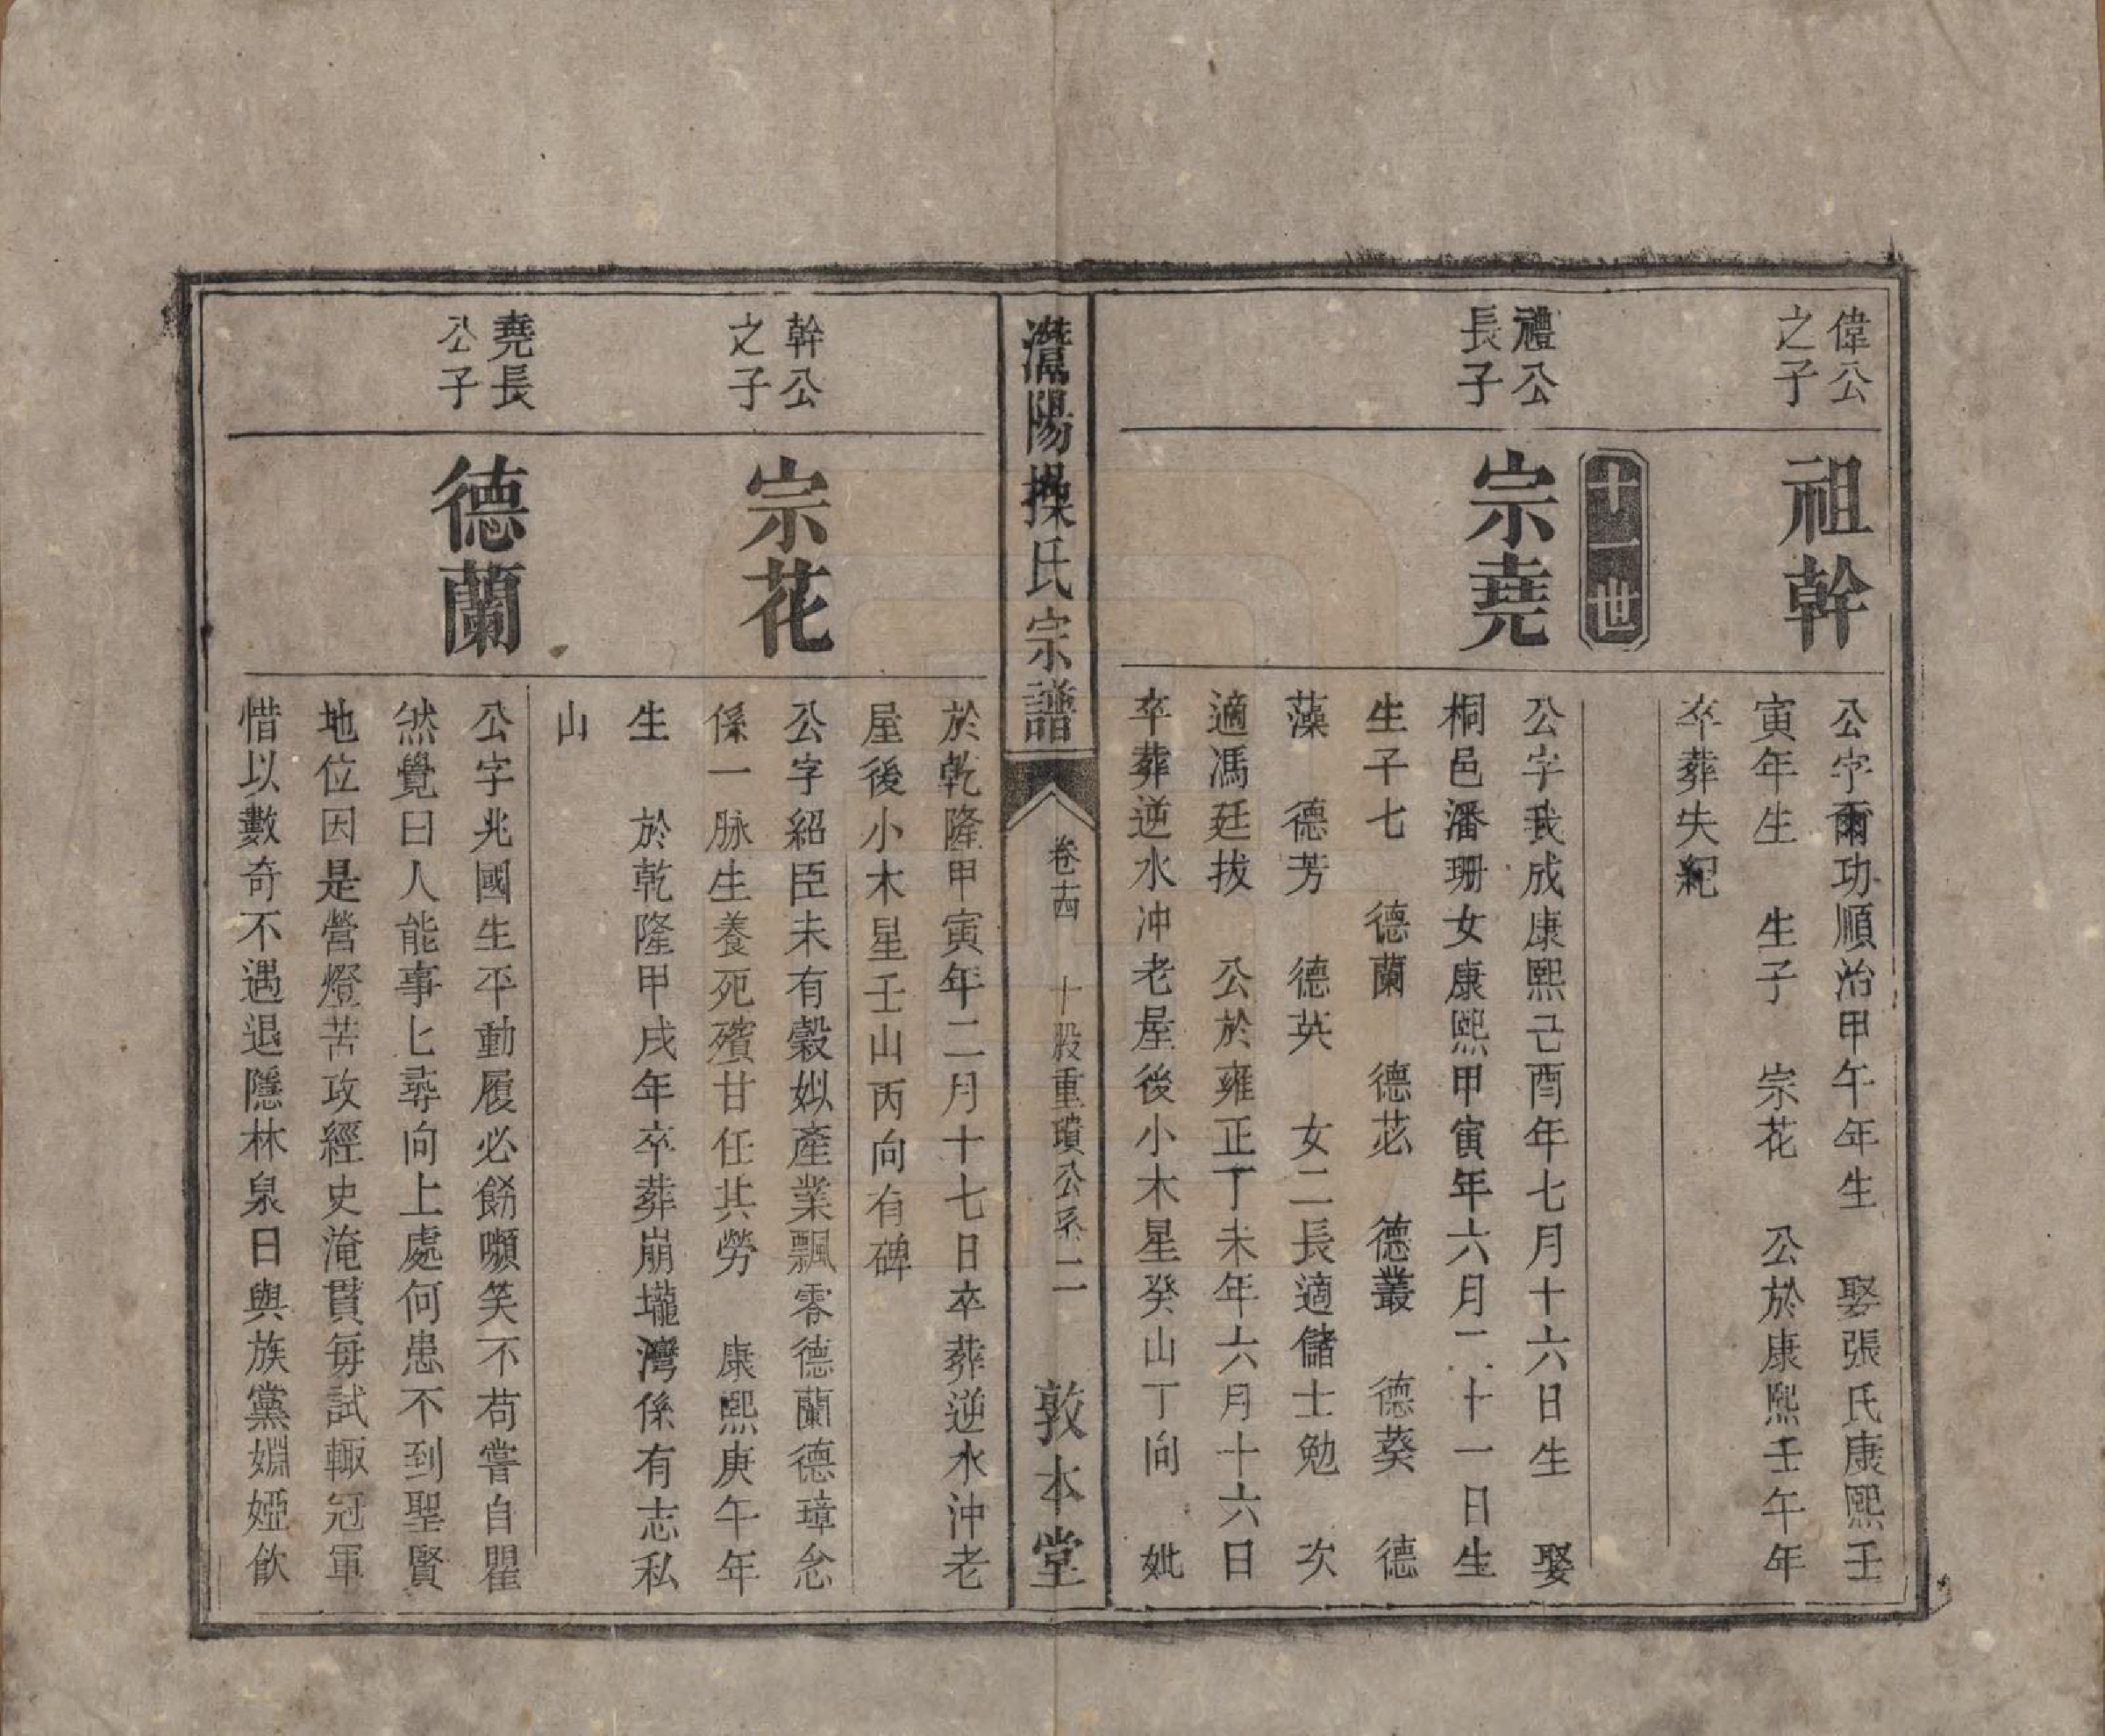 偉公
之子
祖幹
公字爾功順治甲午年生　娶張氏康熙壬
寅年生　生子　宗花　公於康熙壬午年
卒葬失紀
十一世
禮公
長子
宗堯
公字我成康熙己酉年七月十六日生　娶
桐邑潘珊女康熙甲寅年六月二十一日生
生子七　德蘭　德苾　德叢　德葵　德
藻　德芳　德英　女二長適儲士勉　次
適馮廷拔　公於雍正丁未年六月十六日
卒葬逆水冲老屋後小木星癸山丁向　妣
灊陽操氏宗譜
卷十四　十股重璝公系　二
敦本堂
於乾隆甲寅年二月十七日卒葬逆水沖老
屋後小木星壬山丙向有碑
幹公
之子
宗花
公字紹臣未有穀姒產業飄零德蘭德璋念
係一脉生養死殯甘任其勞　康熙庚午年
生　於乾隆甲戌年卒葬崩壠灣係有志私
山
堯長
公子
德蘭
公字兆國生平動履必飭嚬笑不苟嘗自瞿
然覺曰人能事匕尋向上處何患不到聖賢
地位因是營燈苦攻經史淹貫每試輙冠軍
惜以數奇不遇退隱林泉日與族黨婣婭飲